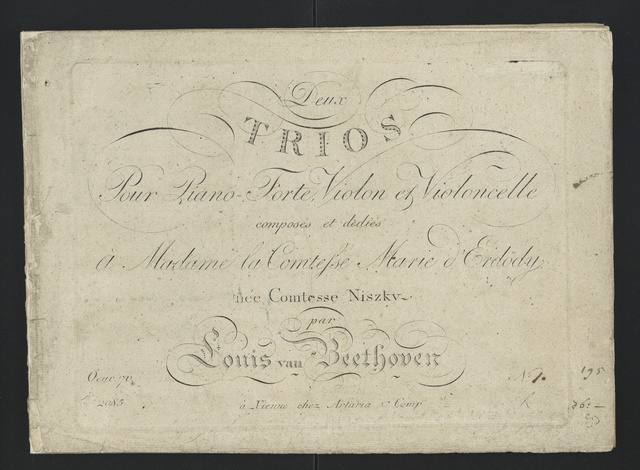 Deux
TRIOS
Pour Piano-Forte, Violon et Violoncelle
composés et dediés
à Madame la Comtesse Marie d'Erdödy
née Comtesse Niszky
par
Louis van Beethoven
Oeuv: 70.
2085
à Vienne chez Artaria & Comp
No 1.
195